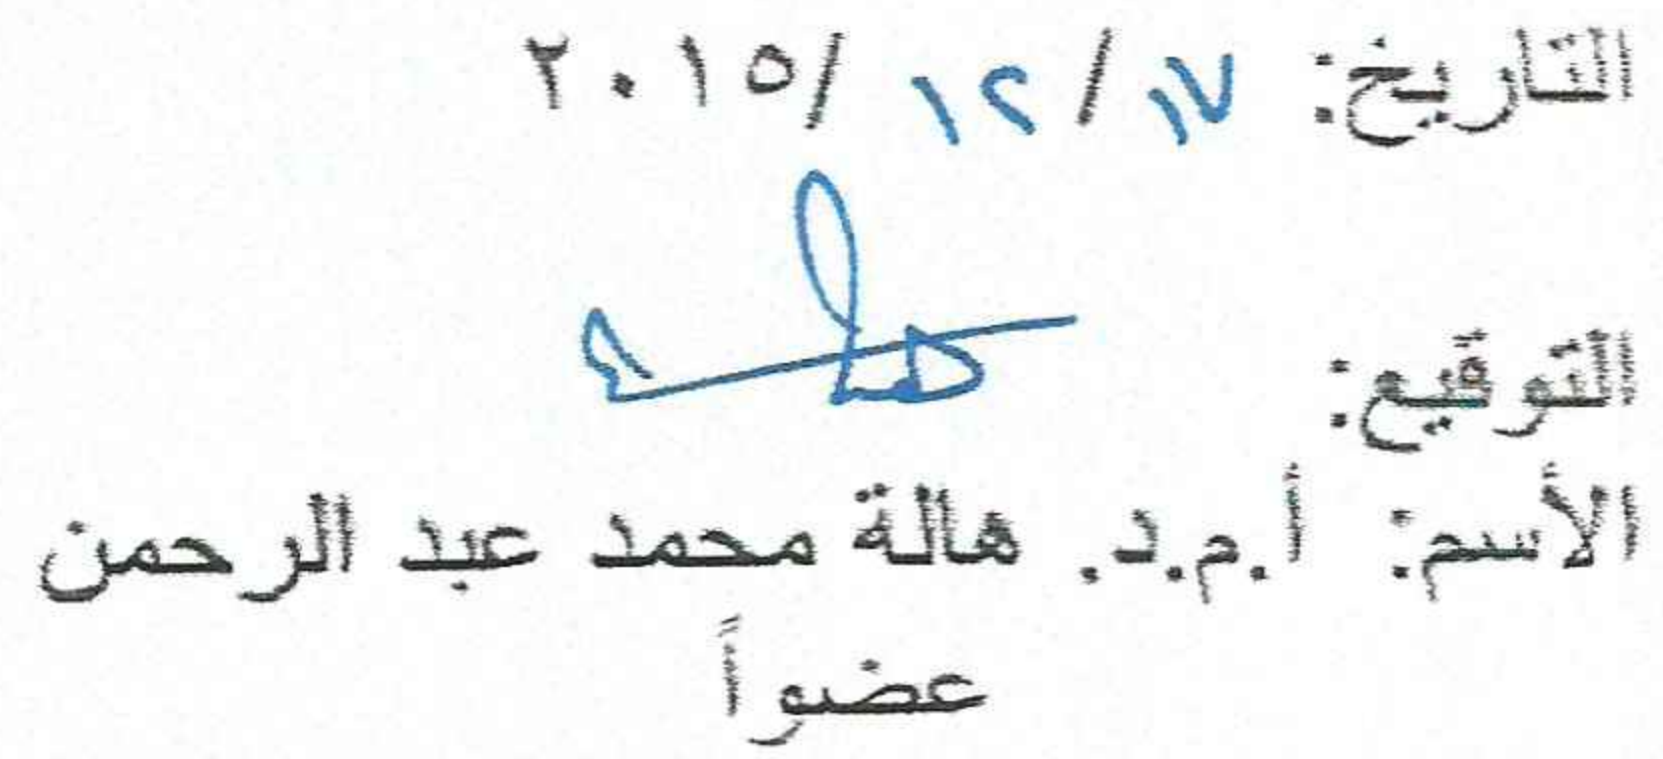 التاريخ: ١٧/ ١٢ /٢٠١٥
التوقيع:
الأسم: أ.م.د. هالة محمد عبد الرحمن
عضواً